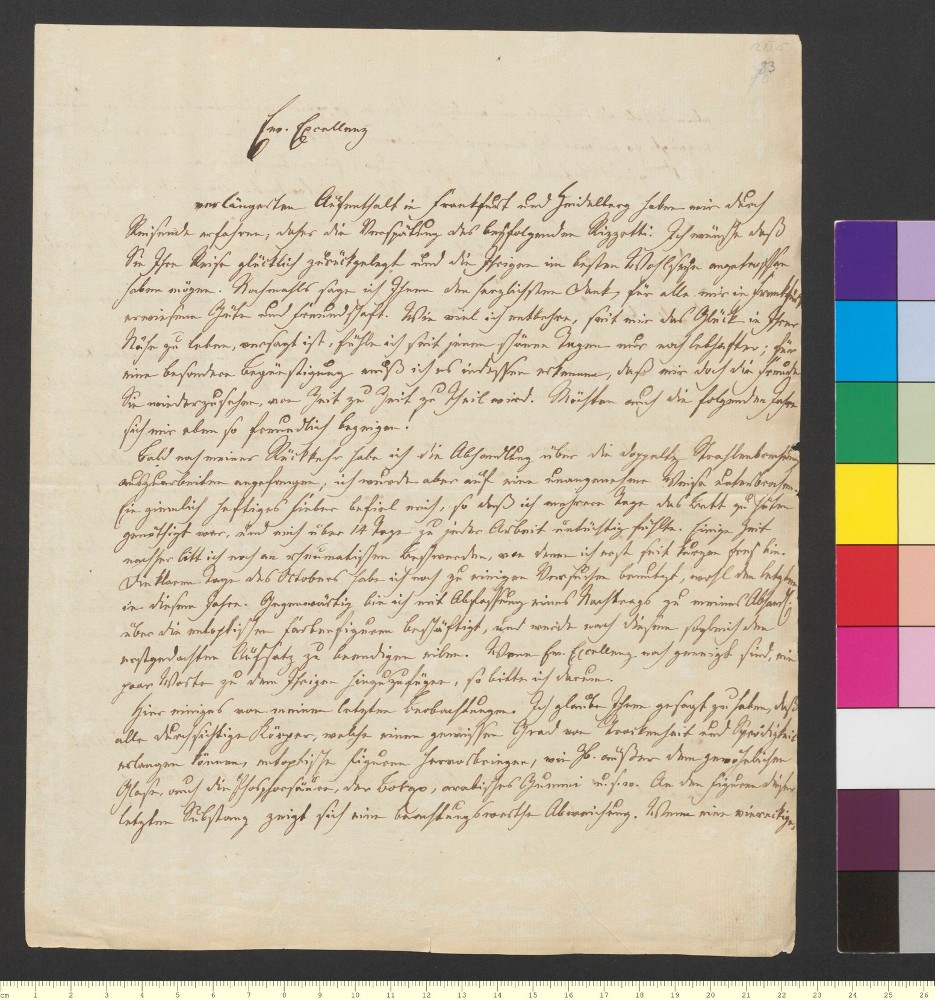 83
Ew. Excellenz
verlängerten Aufenthalt in Frankfurt und Heidelberg haben mir durch
Reisende erfahren, daher die Verspätung des beyfolgenden Rizzetti. Ich wünsche daß
Sie Ihre Reise glücklich zurückgelegt und die Ihrigen im besten Wohlseyn angetroffen
haben mögen. Nochmahls sage ich Ihnen den herzlichsten Dank, für alle mir in Frankfurt
erwiesene Güte und Freundschaft. Wie viel ich entbehre, seit mir das Glück in Ihrer
Nähe zu leben, versagt ist, fühle ich seit jenen schönen Tagen nur noch lebhafter; für
eine besondere Begünstigung muß ich es indessen erkennen, daß mir doch die Freude
Sie wiederzusehen, von Zeit zu Zeit zu Theil wird. Möchten auch die folgenden Jahre
sich mir eben so freundlich bezeigen!
Bald nach meiner Rückkehr habe ich die Abhandlung über die doppelte Strahlenbrechung
auszuarbeiten angefangen, ich wurde aber auf eine unangenehme Weise unterbrochen.
Ein ziemlich heftiges Fieber befiel mich, so daß ich mehrere Tage das Bett zu hüten
genöthigt war, und mich über 14 Tage zu jeder Arbeit untüchtig fühlte. Einige Zeit
nachher litt ich noch an rheumatischen Beschwerden, von denen ich erst seit kurzem frey bin.
Die klaren Tage des Octobers habe ich noch zu einigen Versuchen benutzt, wohl den letzten
in diesem Jahre. Gegenwärtig bin ich mit Abfassung eines Nachtrags zu meiner Abhandl:
über die entoptischen Farbenfiguren beschäftigt, und werde nach diesem sogleich den
erstgedachten Aufsatz zu beendigen eilen. Wenn Ew. Excellenz noch geneigt sind, ein
paar Worte zu dem Ihrigen hinzuzufügen, so bitte ich darum.
Hier einiges von meinen letzten Beobachtungen. Ich glaube Ihnen gesagt zu haben, daß
alle durchsichtige Körper, welche einen gewissen Grad von Trockenheit und Sprödigkeit
erlangen können, entoptische Figuren hervorbringen, wie zb. außer dem gewöhnlichen
Glase, auch die Phosphorsäure, der Borax, arabisches Gummi u.s.w. An den Figuren dieser
letzten Substanz zeigt sich eine beachtungswerthe Abweichung. Wenn eine viereckige,